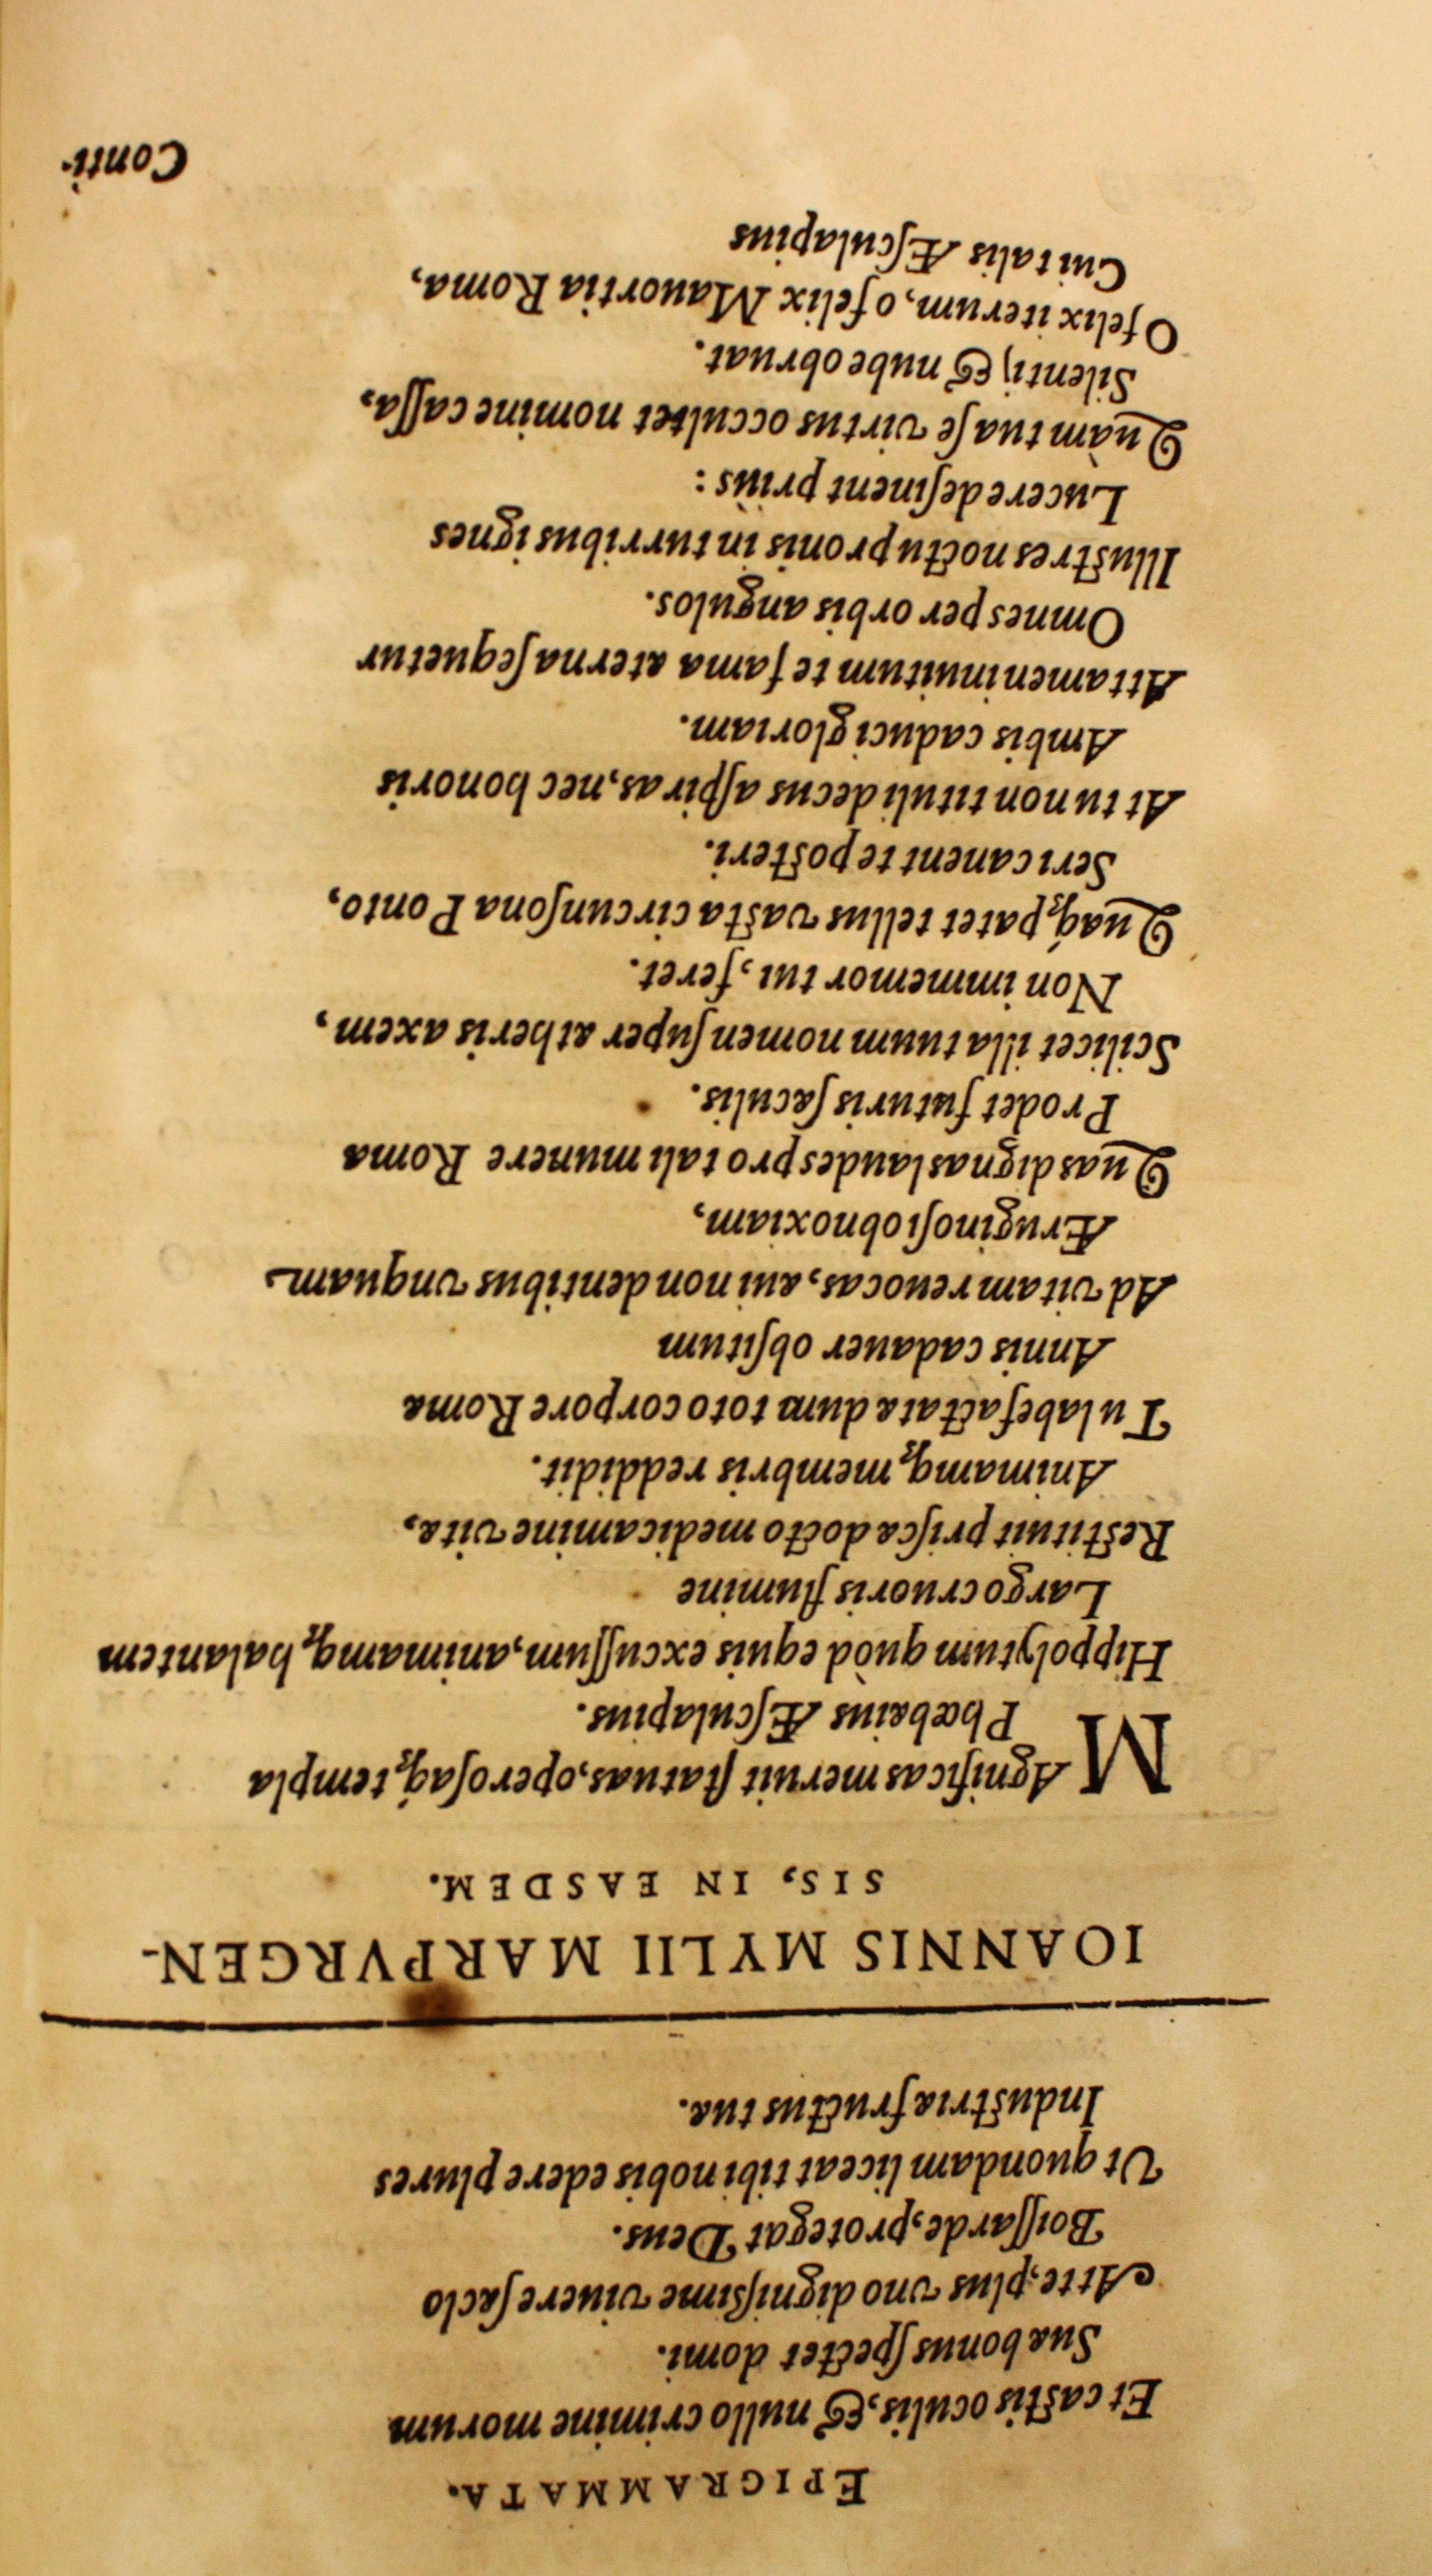 EPIGRAMMATA.
Et castis oculis, & nullo crimine morum
Sua bonus spectet domi.
At te, plus vno dignissime viuere sæclo
Boissarde, protegat Deus.
Ut quondam liceat tibi nobis edere plures
Industriæ fructus tuæ.
IOANNIS MYLII MARPVRGEN-
SIS, IN EASDEM.
MAgnificas meruit statuas, operosaq́; templa
Phœbæius Æsculapius.
Hippolytum quòd equis excussum, animamq; halantem
Largo cruoris flumine
Restituit priscæ docto medicamine vitæ,
Animamq; membris reddidit.
Tu labefactatæ dum toto corpore Romæ
Annis cadauer obsitum
Ad vitam reuocas, æui non dentibus vnquam
Æruginosi obnoxiam,
Quas dignas laudes pro tali munere Roma
Prodet futuris sæculis.
Scilicet illa tuum nomen super ætheris axem,
Non immemor tui, feret.
Quáq; patet tellus vasta circunsona Ponto,
Seri canent te posteri.
At tu non tituli decus aspiras, nec honoris
Ambis caduci gloriam.
Attamen inuitum te fama æterna sequetur
Omnes per orbis angulos.
Illustres noctu pronis in turribus ignes
Lucere desinent priùs:
Quàm tua se virtus occultet nomine cassa,
Silentij & nube obruat.
O felix iterum, o felix Mauortia Roma,
Cui talis Æsculapius
Conti-